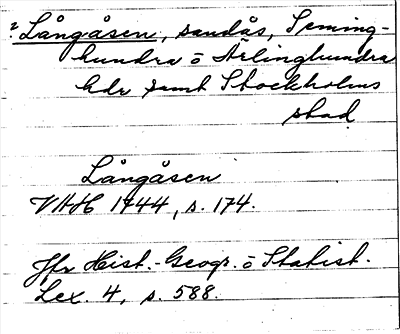 ? Långåsen, sandås, Seming-
hundra o Ärlinghundra
hdr samt Stockholms
stad
Långåsen
VHH 1744, s. 174.
Jfr Hist.-Geogr. o Statist.
Lex. 4, s. 588.